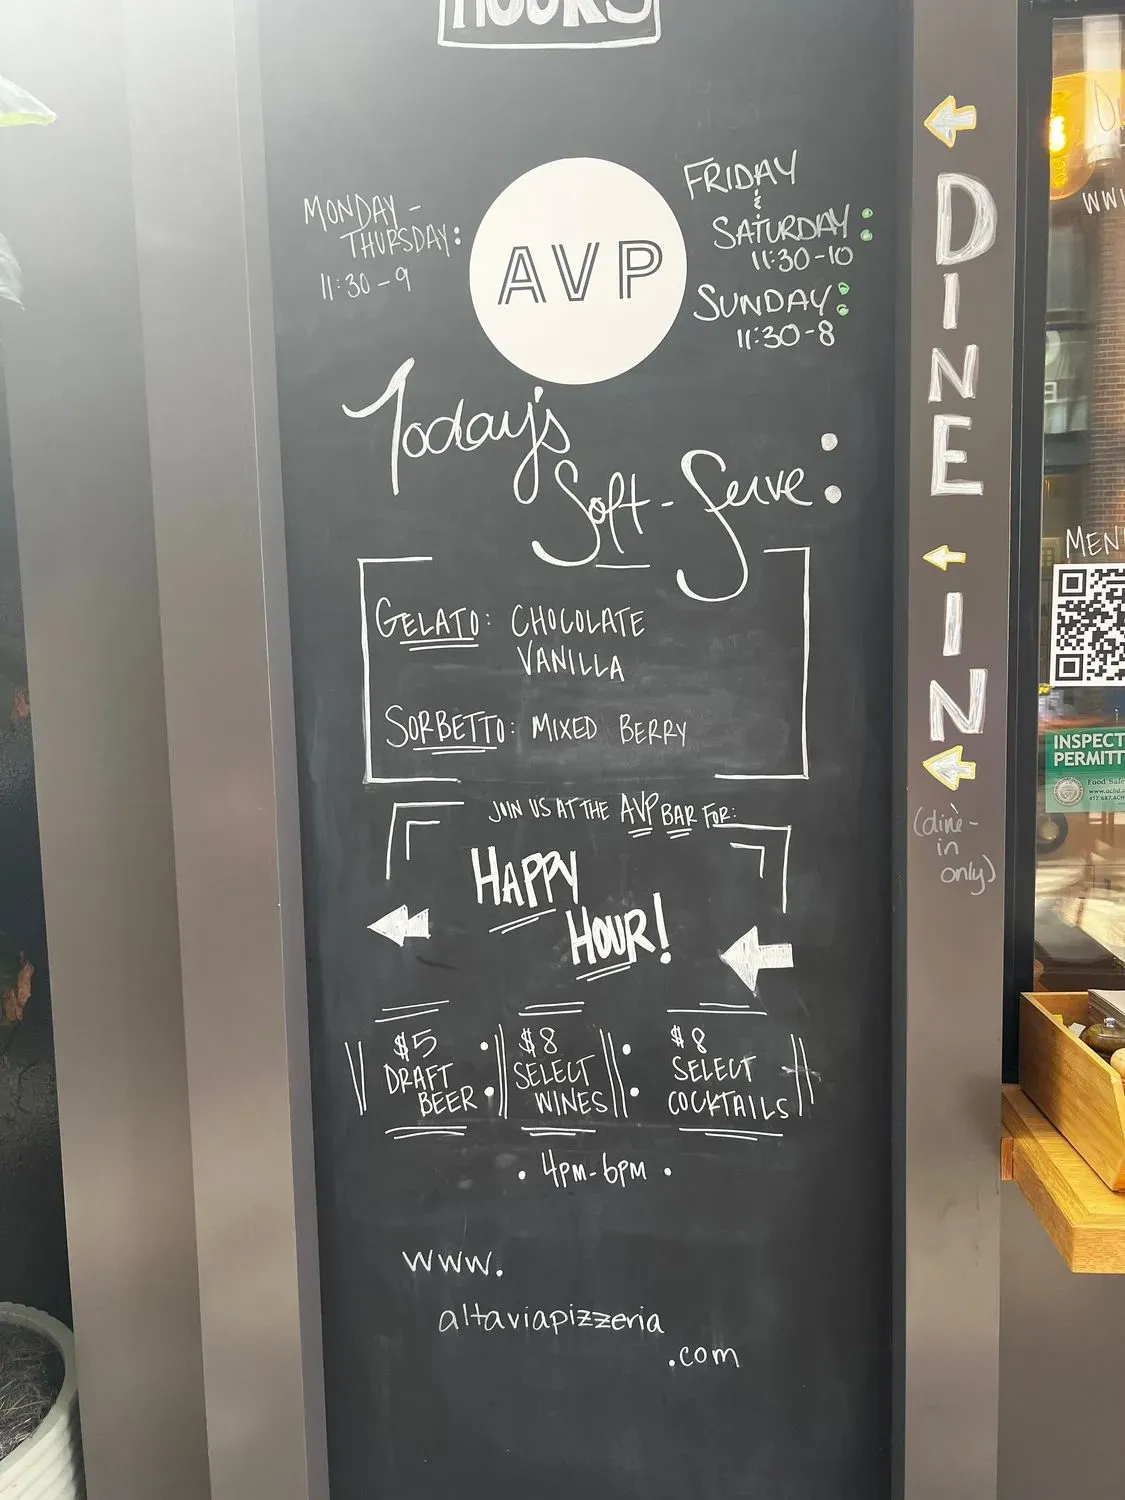 HOURS
MONDAY -
THURSDAY:
11:30 - 9
AVP
FRIDAY
&
SATURDAY:
11:30 - 10
SUNDAY:
11:30 - 8
Today's
Soft-Serve:
GELATO: CHOCOLATE
VANILLA
SORBETTO: MIXED BERRY
JOIN US AT THE AVP BAR FOR:
HAPPY
HOUR!
$5
DRAFT
BEER
$8
SELECT
WINES
$8
SELECT
COCKTAILS
4PM-6PM
www.
altaviapizzeria
.com
DINE
IN
(dine-
in
only)
MEN
INSPECT
PERMITT
Food Safe